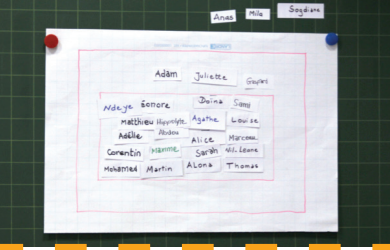 Anas Milo Sogdiane
Adam Juliette
Ndeye Eonore Doïna Sami
Matthieu Hippolyte Agathe Louise
Adélie Abdou Alice Marceau
Corentin Maxime Sarah Léane
Mohamed Martin Alona Thomas